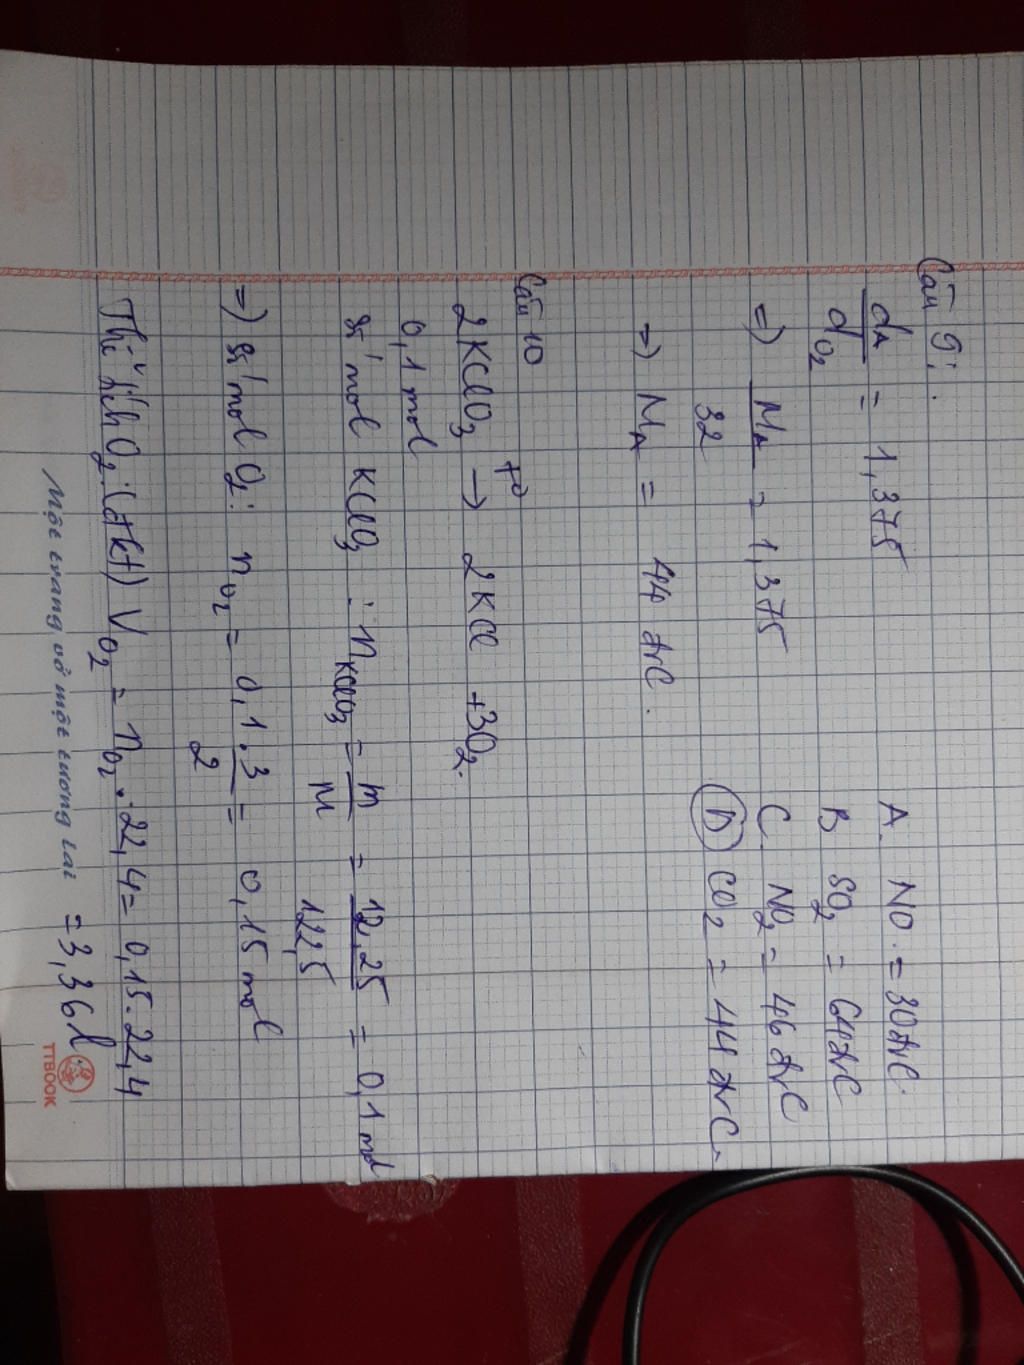 Câu 9:
dA / dO2 = 1,375
A. NO = 30 đvC.
B SO2 = 64 đvC
=) MA / 32 = 1,375
C. NO2 = 46 đvC
D CO2 = 44 đvC
=) MA = 44 đvC.
Câu 10
2KClO3 → t° 2KCl + 3O2.
0,1 mol
số mol KClO3 : nKClO3 = m / M = 12,25 / 122,5 = 0,1 mol
=) số mol O2: nO2 = 0,1.3 / 2 = 0,15 mol
Thể tích O2: (đkt) VO2 = nO2 . 22,4 = 0,15.22,4
= 3,36 l
Một trang vở một tương lai
TTBOOK